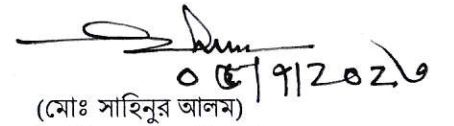 ০৫/৭/২০২৩
(মোঃ সাহিনুর আলম)